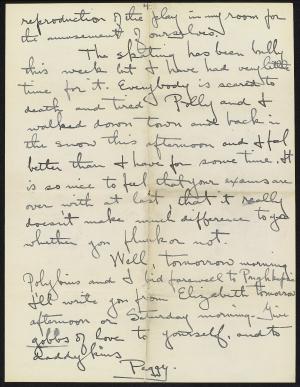 4.
reproduction of the play in my room for
the amusement of ourselves.
The skating has been bully
this week but I have had very little
time for it. Everybody is scared to
death and tired. Polly and I
walked down town and back in
the snow this afternoon and I feel
better than I have for some time. It
is so nice to feel that your exams are
over with at last that it really
doesn't make much difference to you
whether you flunk or not.
Well tomorrow morning
Polybius and I bid farewell to
I'll write you from Elizabeth tomorrow
afternoon or Saturday morning. Give
gobbs of love to yourself, and to
Daddykins
Peggy.